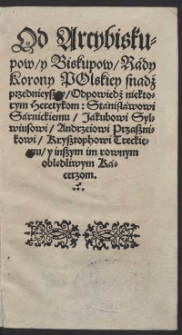 Od Arcybisku-
pow/ y Biskupow/ Rády
Korony POlskiey snadź
przednieyszy/ Odpowiedź niekto-
rym Heretykom: Stanisławowi
Sarnickiemu/ Jakubowi Syl-
wiusowi/ Andrzeiowi Przásni-
kowi/ Krysztophowi Treckie-
mu/ y inszym im rownym
obłedliwym Ká-
cerzom.